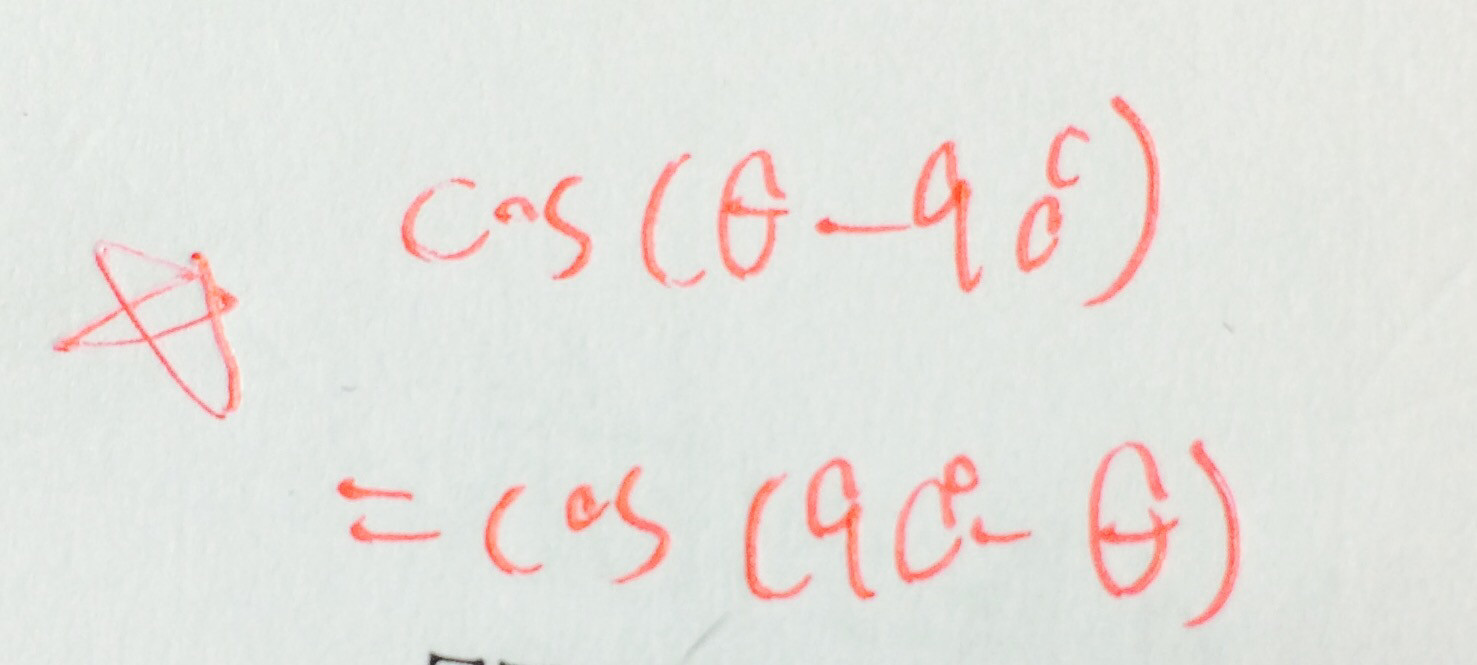 cos(θ-90°)
=cos(90°-θ)